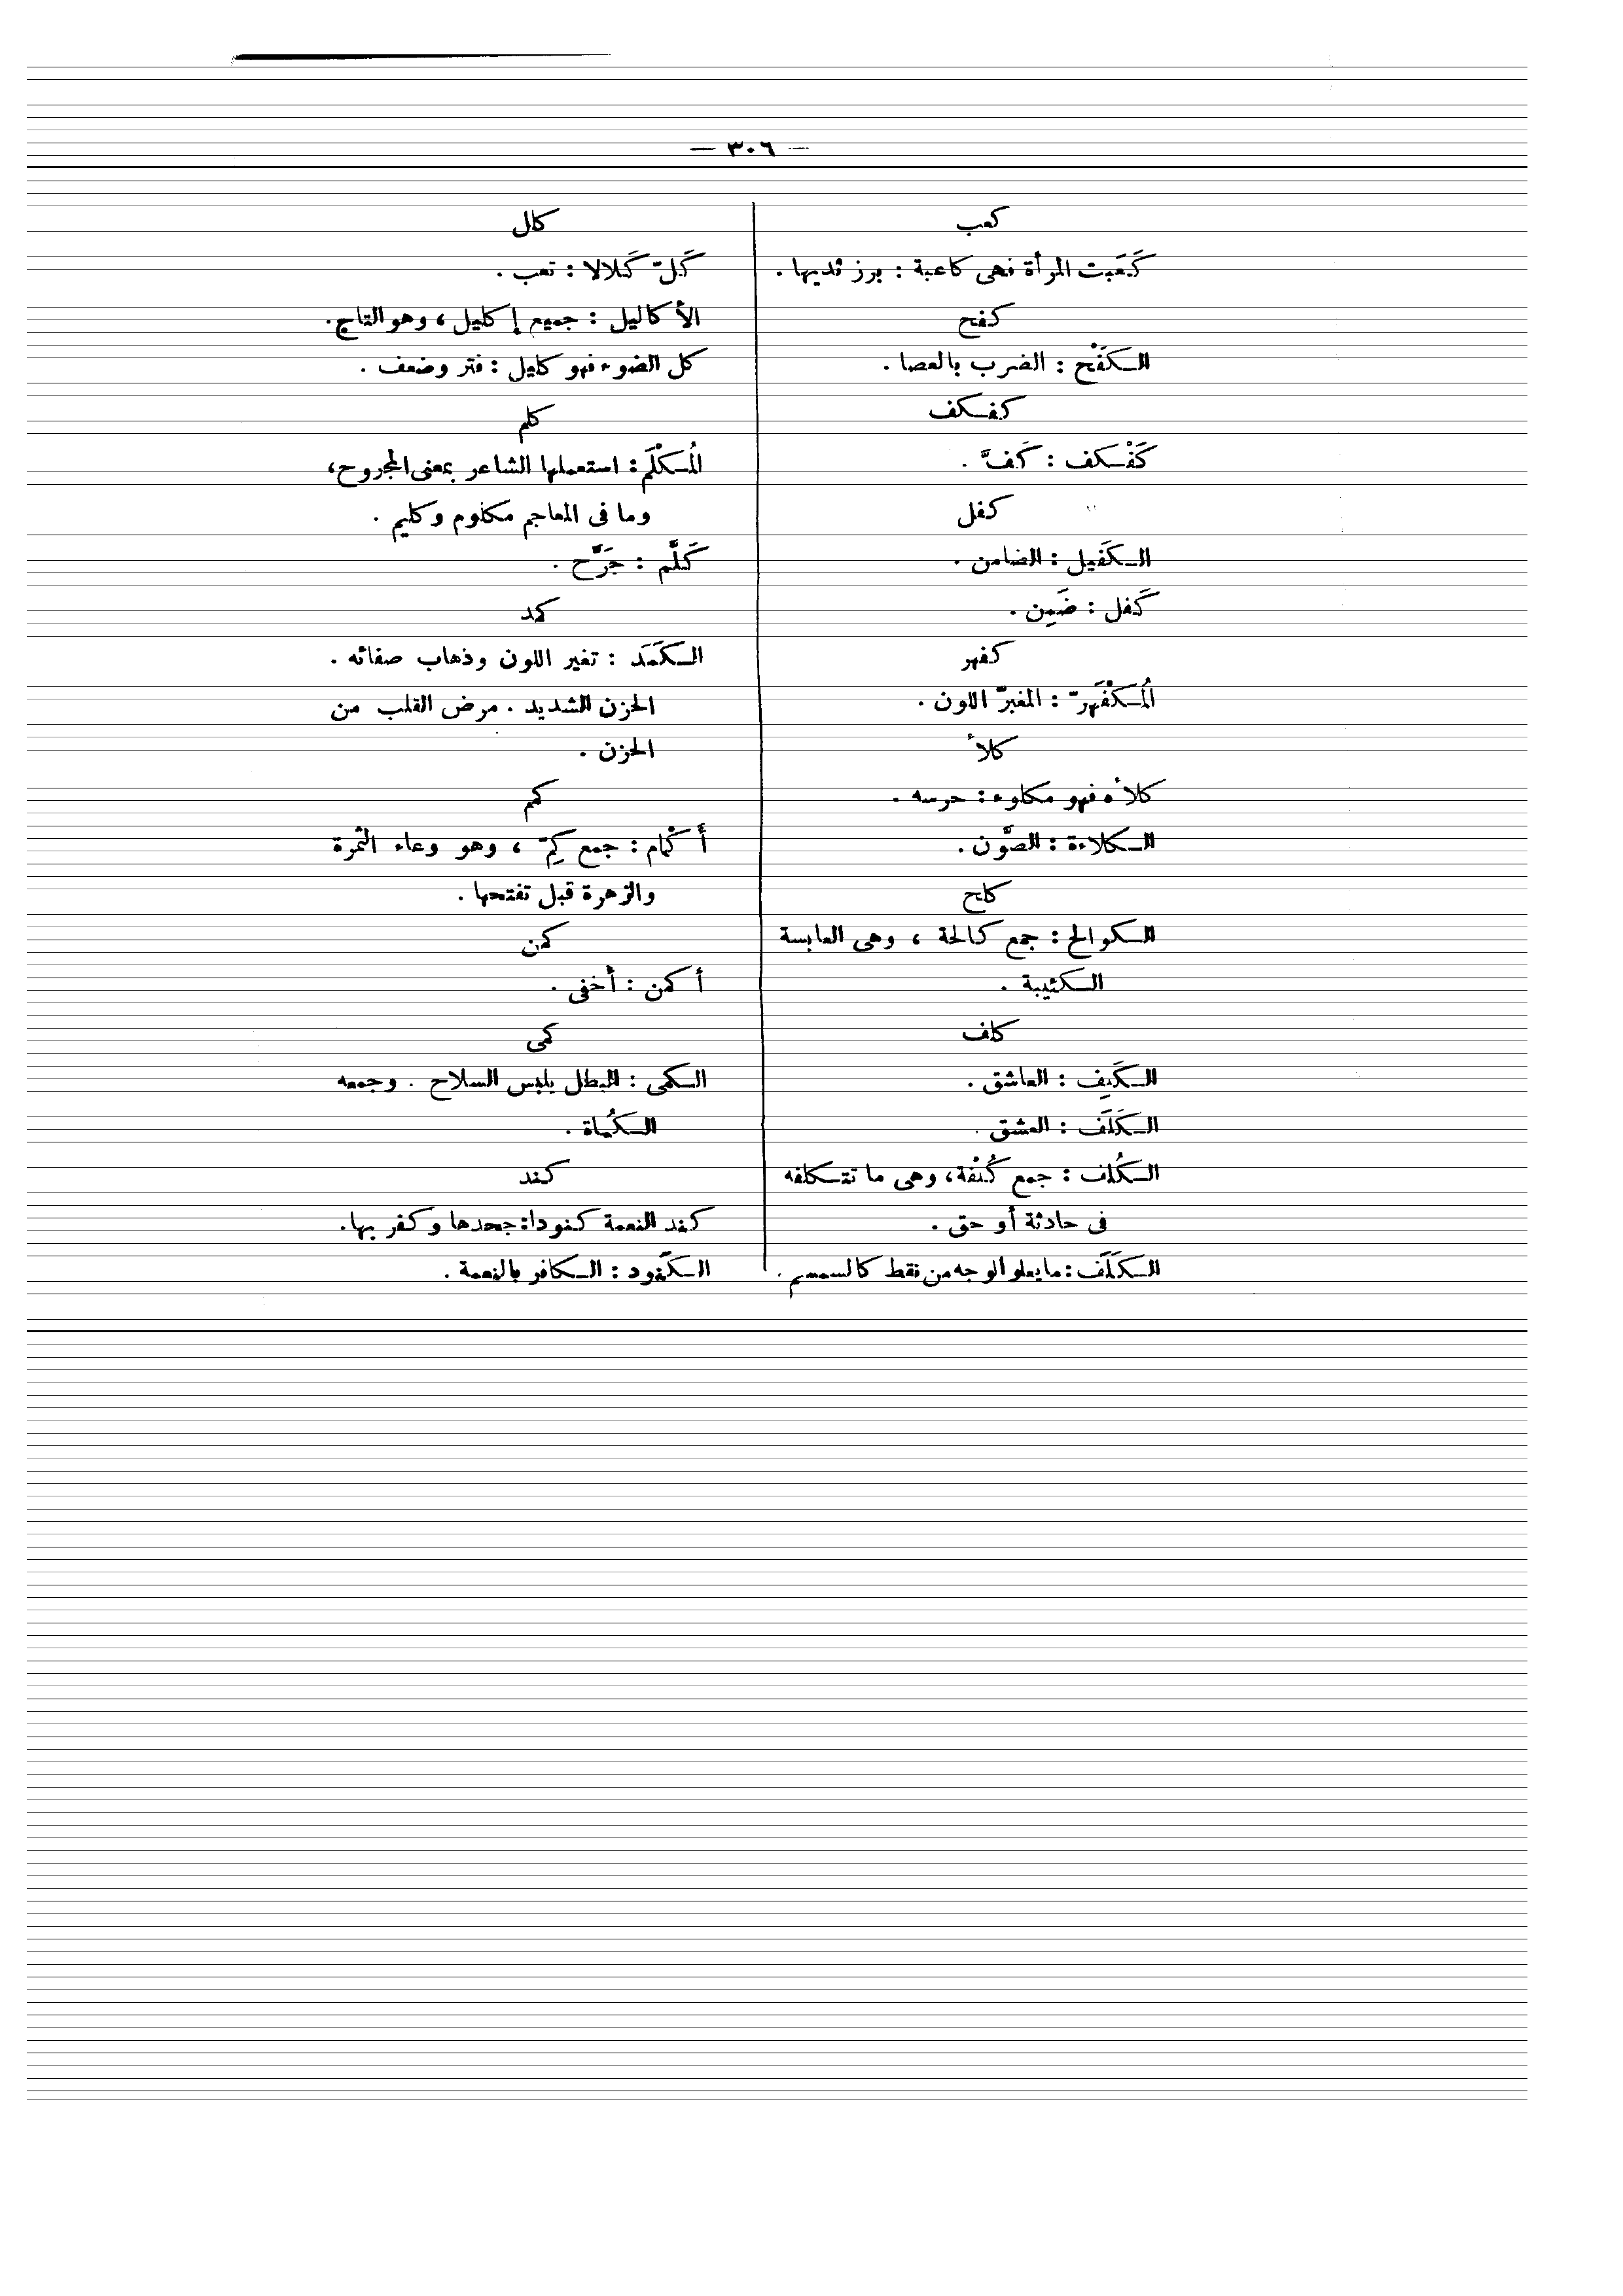 — ٣٠٦ —
كعب
كَعَبت المرأة فهى كاعبة : برز ثديها .
كفح
الكَفْح : الضرب بالعصا .
كفكف
كَفْكف : كَفَّ .
كفل
الكَفيل : الضامن .
كَفل : ضَمِن .
كفهر
المُكْفَهِرّ : المغبرّ اللون .
كلأ
كلأه فهو مكلوء : حرسه .
الكلاءة : الصَّون .
كلح
الكوالح : جمع كالحة ، وهى العابسة
الكئيبة .
كلف
الكَلِف : العاشق .
الكَلَف : العشق .
الكُلَف : جمع كُلْفة ، وهى ما تتكلفه
فى حادثة أو حق .
الكَلَف : ما يعلو الوجه من نقط كالسمسم .
كلل
كَلّ كَلالا : تعب .
الأكاليل : جميع إكليل ، وهو التاج .
كل الضوء فهو كليل : فتر وضعف .
كلم
المُكْلَم : استعملها الشاعر بمعنى المجروح ،
وما فى المعاجم مكلوم وكليم .
كَلَّم : جَرَّح .
كمد
الكَمَد : تغير اللون وذهاب صفائه .
الحزن الشديد . مرض القلب من
الحزن .
كم
أَكْمام : جمع كِمّ ، وهو وعاء الثمرة
والزهرة قبل تفتحها .
كمن
أكمن : أخفى .
كمى
الكمى : البطل يلبس السلاح . وجمعه
الكُماة .
كند
كند النعمة كنودا : جحدها وكفر بها .
الكَنود : الكافر بالنعمة .